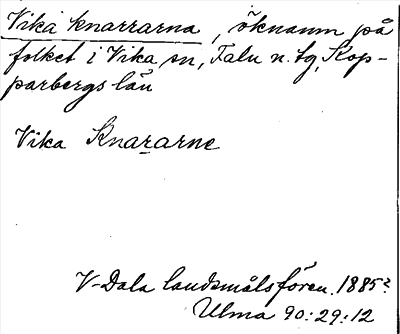 Vika knarrarna, öknamn på
folket i Vika sn, Falu n. tg, Kop-
parbergs län
Vika Knararne
V-Dala landsmålsfören. 1885?
Ulma 90:29:12